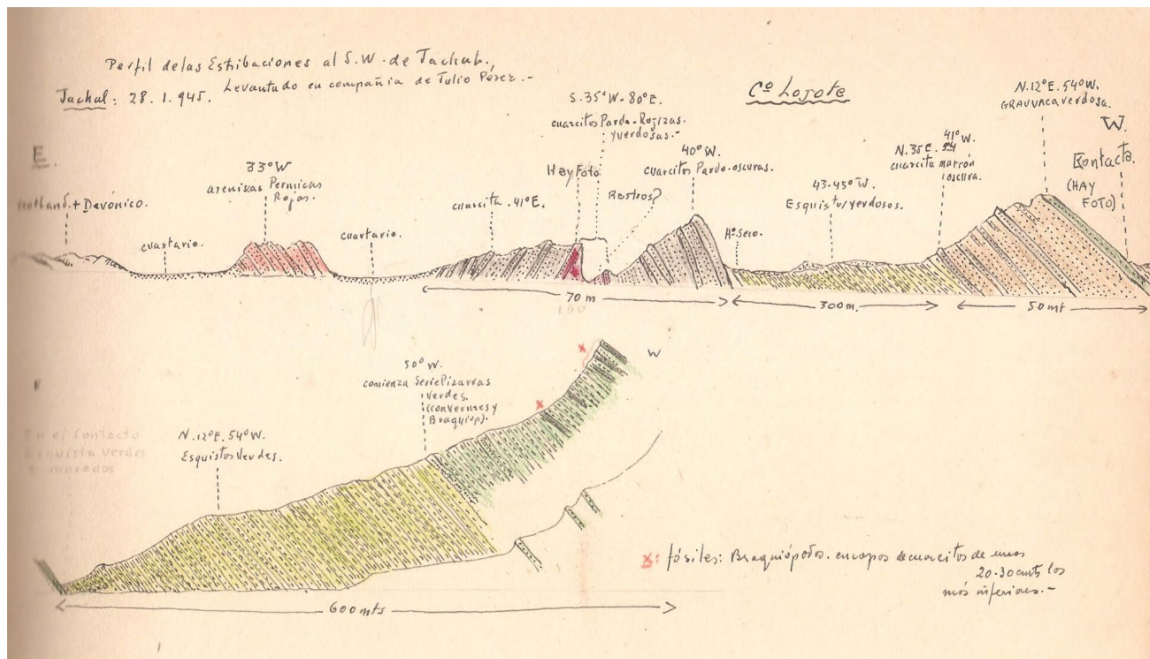 Perfil de las Estribaciones al S.W. de Jachal.,
Jachal: 28. 1. 945. Levantado en compañia de Tulio Perez.-
Cº Lojote
E.
W.
+ Devónico.
cuartario.
33ºW
areniscas Permicas
Rojas.
cuartario.
cuarcita. 41ºE.
Hay Foto
S. 35ºW- 80ºE.
cuarcitos Pardo-Rojizas.
y verdosas.-
Rostros?
40º W.
cuarcitos Pardo-oscuras.
Hº Seco.
43-45º W.
Esquistos/verdosos.
41ºW
N. 35 E. 54
cuarcita marrón
oscura.
N.12ºE. 54ºW.
GRAUVACA verdosa.
Contacto.
(HAY
FOTO)
70 m
100
300 m.
50 mt
W
En el Contacto
Esquisto verdes
morados
N.12ºE. 54ºW.
Esquistos Verdes.
50º W.
comienza Serie Pizarras
verdes.
(con vermes y
Braquióp).
x
x
x: fósiles: Braquiópodos. en capas de cuarcitos de unos
20-30 cmts los
más inferiores.-
600 mts